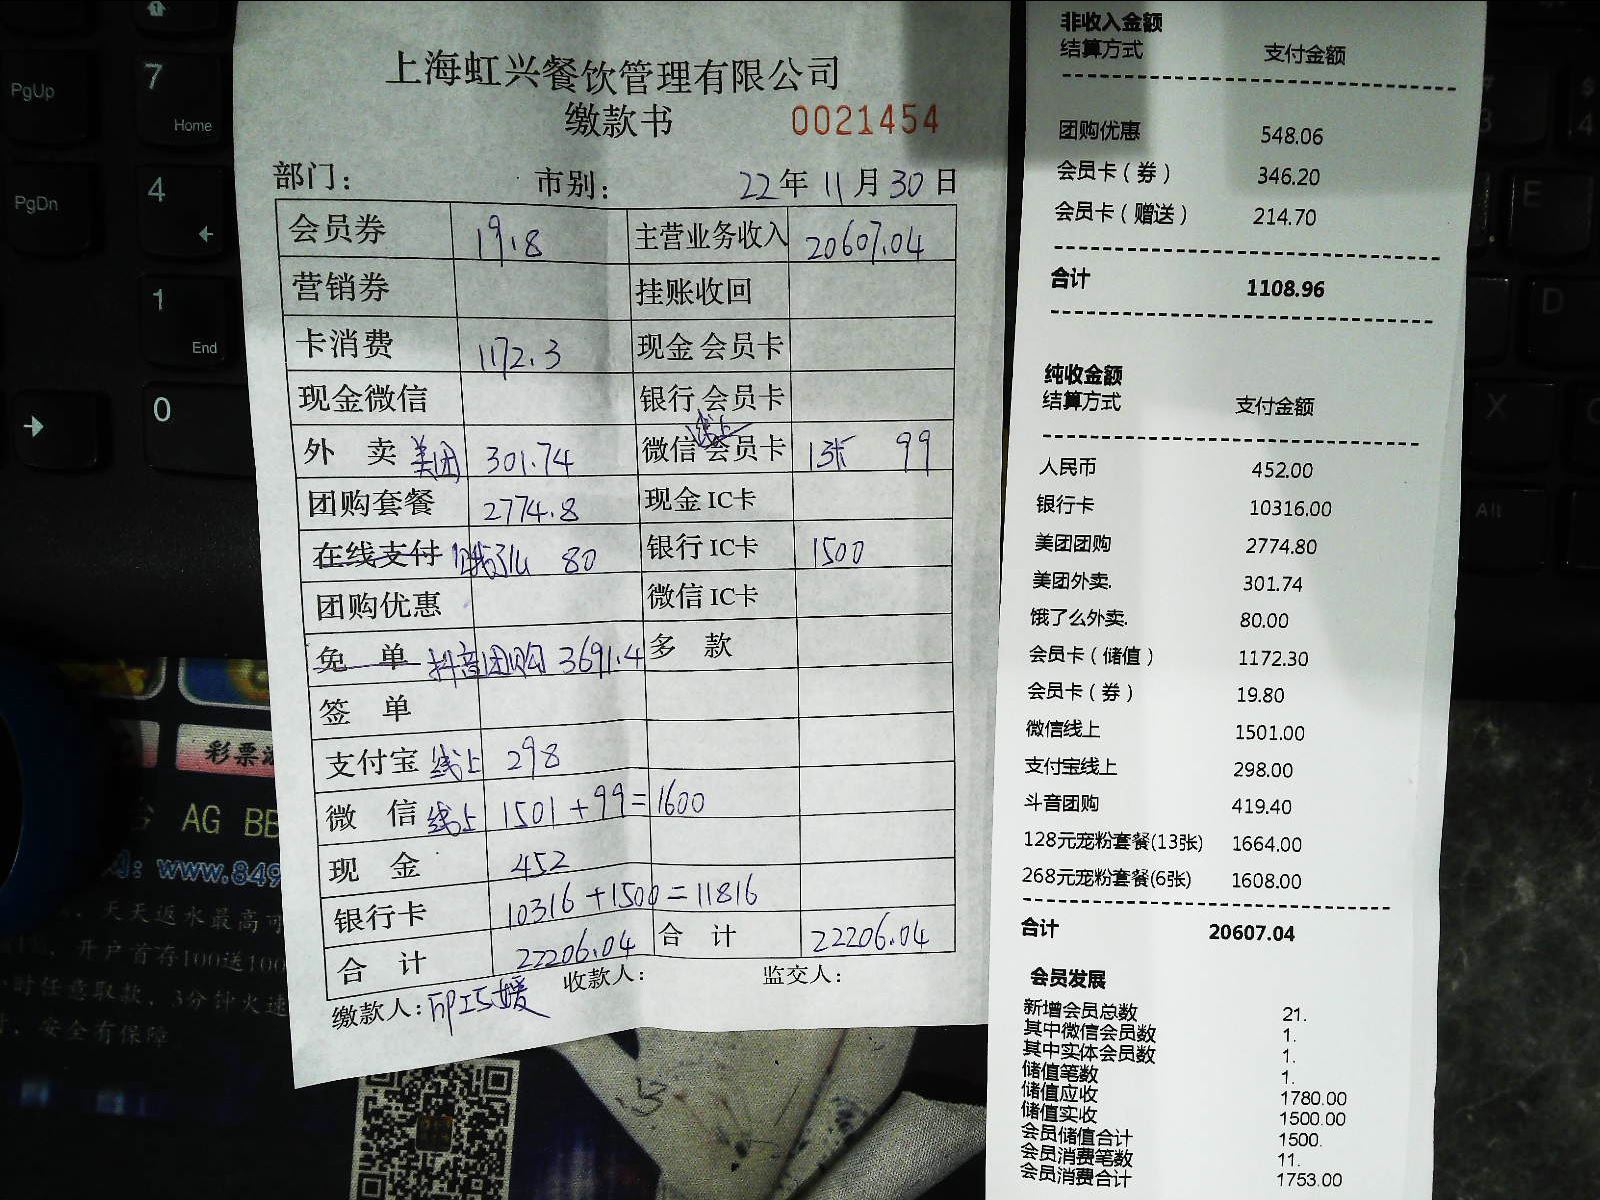 上海虹兴餐饮管理有限公司
缴款书 0021454
部门： 市别： 22年11月30日
会员券 19.8 主营业务收入 20607.04
营销券 挂账收回
卡消费 1172.3 现金会员卡
现金微信 银行会员卡
外卖 美团 301.74 微信 线上 会员卡 13张 99
团购套餐 2774.8 现金IC卡
在线支付 80 银行IC卡 1500
团购优惠 微信IC卡
免单 抖音团购 3691.4 多款
签单
支付宝 线上 298
微信 线上 1501+99=1600
现金 452
银行卡 10316+1500=11816
合计 22206.04 合计 22206.04
缴款人： 收款人： 监交人：
非收入金额
结算方式 支付金额
团购优惠 548.06
会员卡（券） 346.20
会员卡（赠送） 214.70
合计 1108.96
纯收金额
结算方式 支付金额
人民币 452.00
银行卡 10316.00
美团团购 2774.80
美团外卖. 301.74
饿了么外卖. 80.00
会员卡（储值） 1172.30
会员卡（券） 19.80
微信线上 1501.00
支付宝线上 298.00
斗音团购 419.40
128元宠粉套餐(13张) 1664.00
268元宠粉套餐(6张) 1608.00
合计 20607.04
会员发展
新增会员总数 21.
其中微信会员数 1.
其中实体会员数 1.
储值笔数 1.
储值应收 1780.00
储值实收 1500.00
会员储值合计 1500.
会员消费笔数 11.
会员消费合计 1753.00
PgUp
7
Home
PgDn
4
1
End
0
E
D
X
Alt
彩票
AG BB
www.849
天天返水最高可
开户首存100送100
小时任意取款，3分钟火速
安全有保障